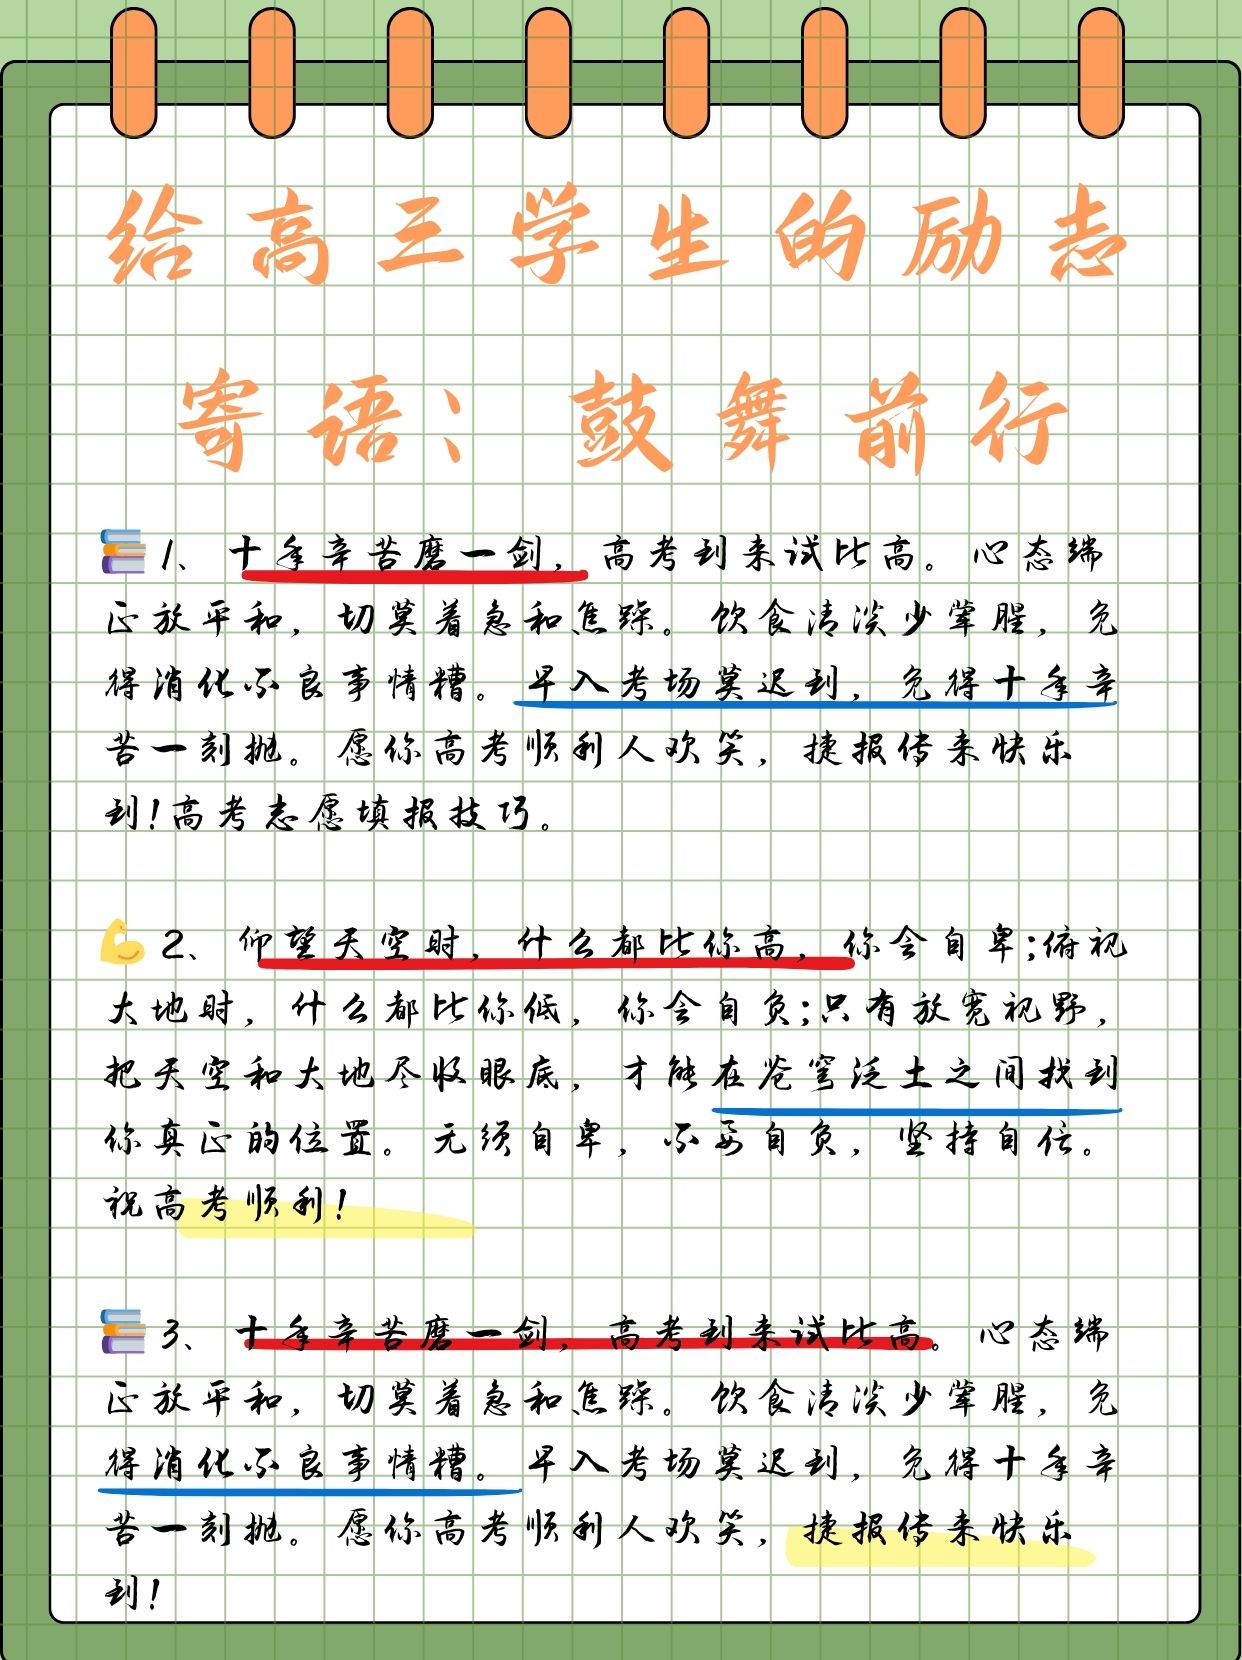 给高三学生的励志
寄语：鼓舞前行
1、十年辛苦磨一剑，高考到来试比高。心态端
正放平和，切莫着急和焦躁。饮食清淡少荤腥，免
得消化不良事情糟。早入考场莫迟到，免得十年辛
苦一刻抛。愿你高考顺利人欢笑，捷报传来快乐
到！高考志愿填报技巧。
2、仰望天空时，什么都比你高，你会自卑；俯视
大地时，什么都比你低，你会自负；只有放宽视野，
把天空和大地尽收眼底，才能在苍穹泛土之间找到
你真正的位置。无须自卑，不要自负，坚持自信。
祝高考顺利！
3、十年辛苦磨一剑，高考到来试比高。心态端
正放平和，切莫着急和焦躁。饮食清淡少荤腥，免
得消化不良事情糟。早入考场莫迟到，免得十年辛
苦一刻抛。愿你高考顺利人欢笑，捷报传来快乐
到！